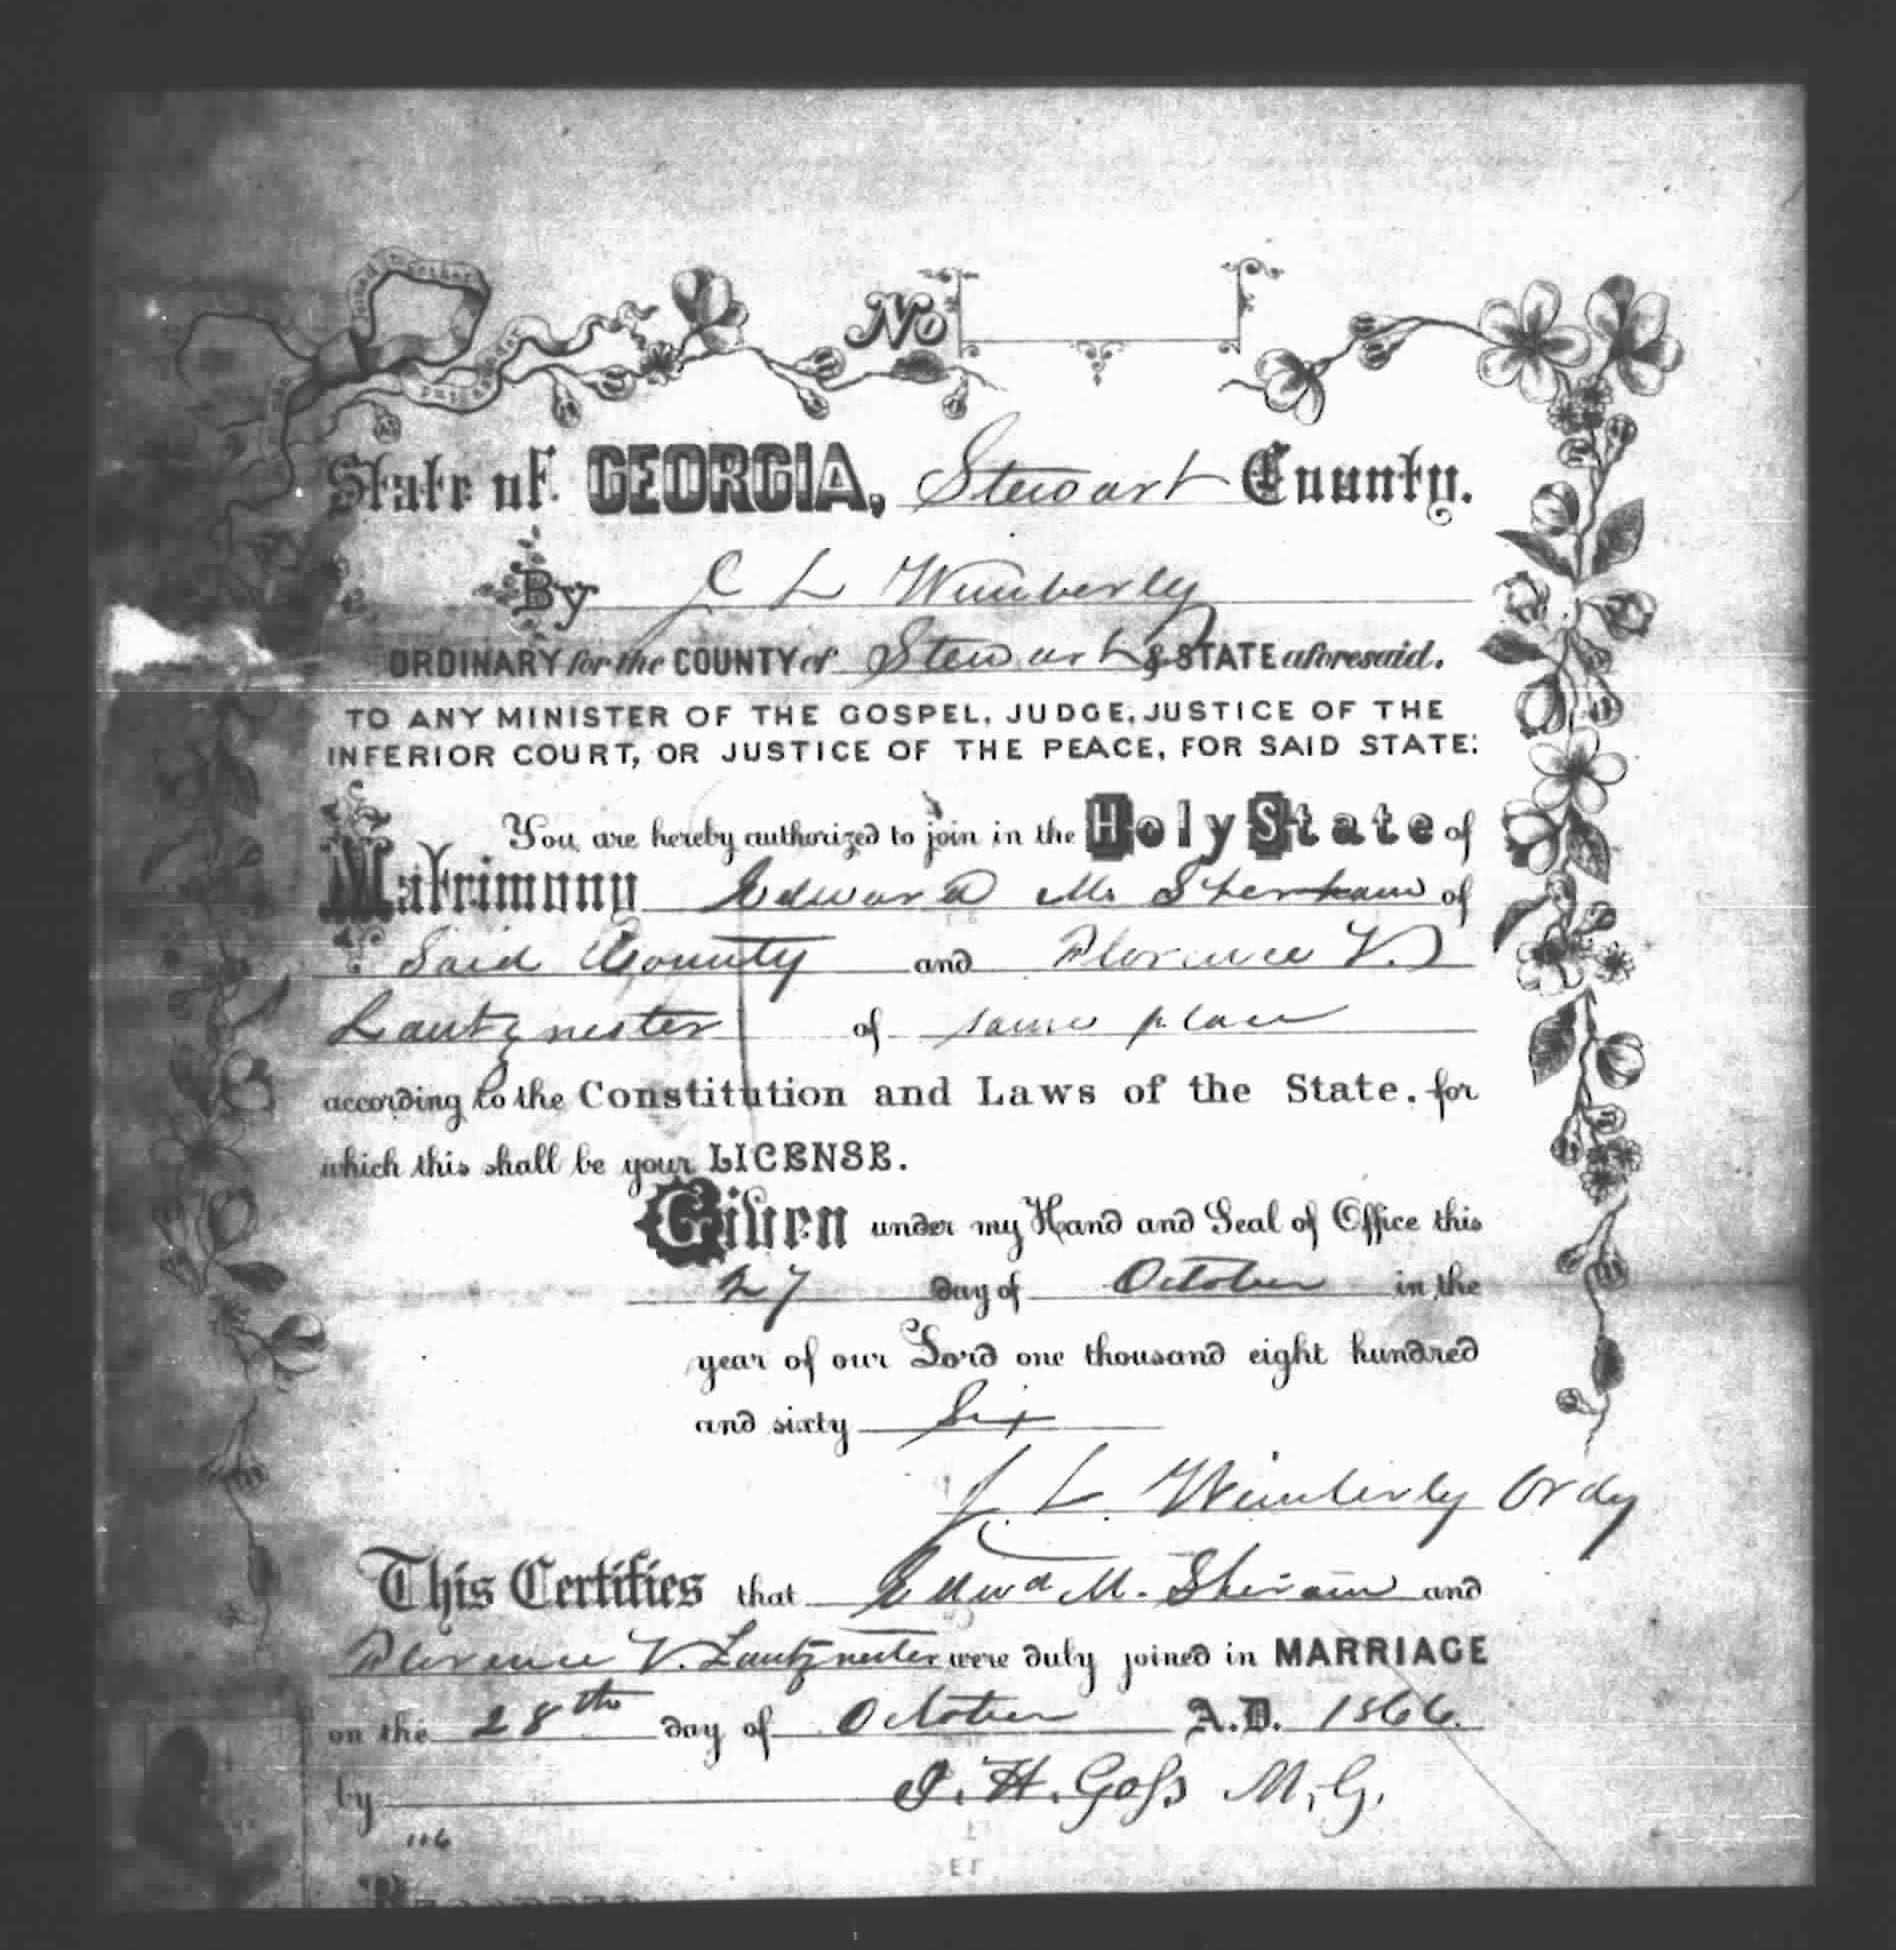 No
State of GEORGIA, Stewart County.
By J L Wimberly
ORDINARY for the COUNTY of Stewart & STATE aforesaid.
TO ANY MINISTER OF THE GOSPEL, JUDGE, JUSTICE OF THE
INFERIOR COURT, OR JUSTICE OF THE PEACE, FOR SAID STATE:
You are hereby authorized to join in the Holy State of
Matrimony Edward M. of
Said County and Florence V.
Lautznester of same place
according to the Constitution and Laws of the State, for
which this shall be your LICENSE.
Given under my Hand and Seal of Office this
27 day of October in the
year of our Lord one thousand eight hundred
and sixty Six
J. L. Wimberly Ordy
This Certifies that Edwd M. and
Florence V. Lautznester were duly joined in MARRIAGE
on the 28th day of October A.D. 1866.
by J. H. Goss M, G.
116